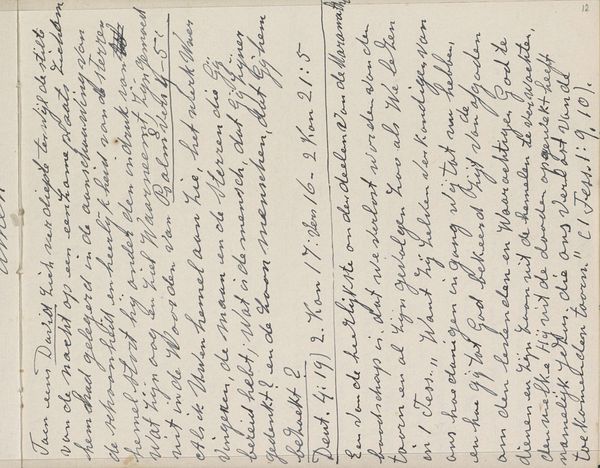 amen
12
Toen eens David zich verdiepte ten tijd de stilte
van de nacht op een eenzame plaats Zich om
hem had gelegerd in de aanschouwing van
de schoonheid en heerlijkheid van de sterren
hemel stort hij onder den indruk van
Wat Zijn oog en Ziel Waarneemt, Zijn gemoed
uit in de Woorden van Psalm 4-5
Als ik Uwen hemel aan Zie, het werk Uwer
Vingeren, de maan en de sterren die Gij
bereid hebt, Wat is de mensch, dat Gij Zijner
gedenkt? en de Zoon menschen, dat Gij hem
bezoekt?
Deut. 4:19) 2. Kon 17: Vers 16 - 2 Kon 21:5
Een van de heerlijkste onderdeelen van de Maranatha
boodschap is, dat we verlost worden van den
toorn en al Zijn gevolgen Zoo als We lezen
in 1 Tess: „Want Zij Zelven verkondigen van
ons hoedanigen in gang wij tot van hebben,
en hoe gij tot God bekeerd Zijt van de afgoden
om den levenden en Waarachtigen God te
dienen en Zijn Zoon uit de hemelen te verwachten,
denwelke Hij uit de dooden opgewekt heeft
namelijk Jezus die ons verlost van de
toekomenden toorn." (1 Tess. 1:9, 10).